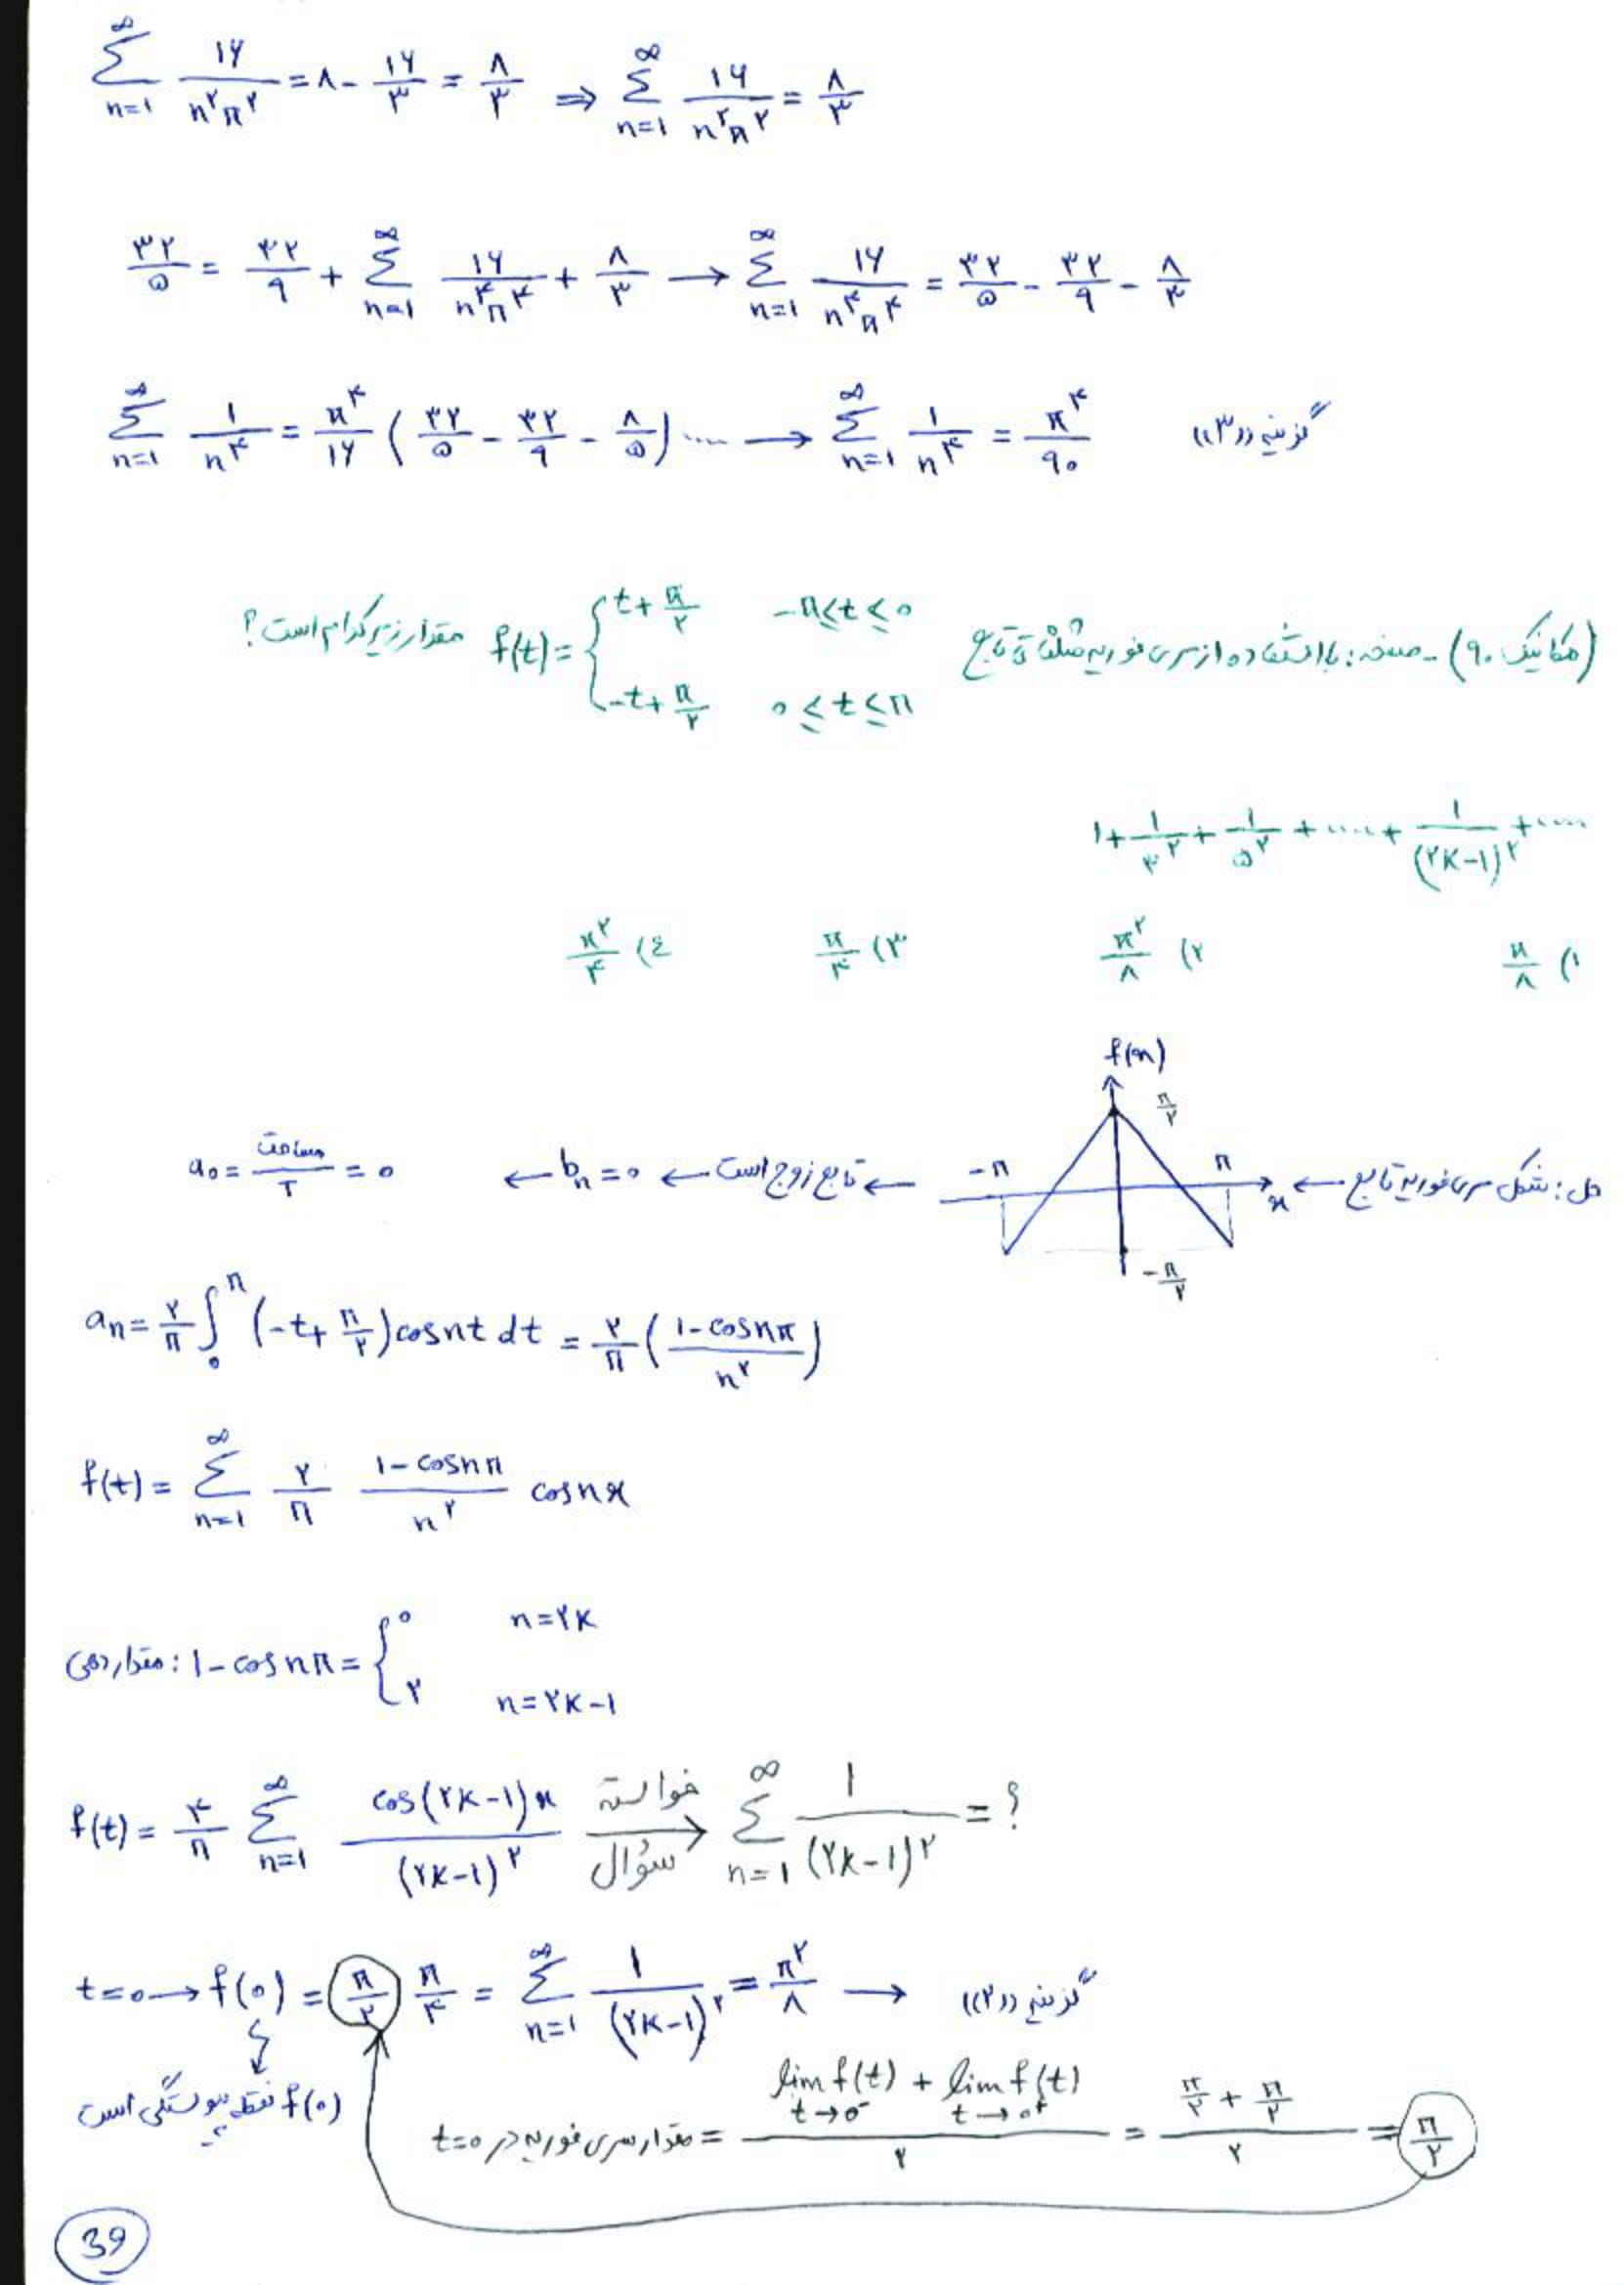 ∑_{n=1}^{∞} ۱۶/(n^۲ π^۲) = ۸ - ۱۶/۳ = ۸/۳ ⇒ ∑_{n=1}^{∞} ۱۶/(n^۲ π^۲) = ۸/۳
۳۲/۵ = ۳۲/۹ + ∑_{n=1}^{∞} ۱۶/(n^۴ π^۴) + ۸/۳ → ∑_{n=1}^{∞} ۱۶/(n^۴ π^۴) = ۳۲/۵ - ۳۲/۹ - ۸/۳
∑_{n=1}^{∞} ۱/n^۴ = π^۴/۱۶ (۳۲/۵ - ۳۲/۹ - ۸/۵) .... → ∑_{n=1}^{∞} ۱/n^۴ = π^۴/۹۰ گزینه «۳»
(مکانیک ۹۰) - صفحه: با استفاده از سری فوریه مثلثاتی تابع f(t) = { t + π/۲ -π ≤ t ≤ ۰ ; -t + π/۲ ۰ ≤ t ≤ π مقدار زیر کدام است؟
۱ + ۱/۳^۲ + ۱/۵^۲ + .... + ۱/(۲K-۱)^۲ + ....
۱) π/۸ ۲) π^۲/۸ ۳) π/۴ ٤) π^۲/۴
f(x) π/۲ -π π x -π/۲
حل: شکل سری فوریه تابع ← ← تابع زوج است ← b_n = ۰ ← a₀ = مساحت/T = ۰
a_n = ۲/π ∫_۰^π (-t + π/۲) cosnt dt = ۲/π ((۱ - cosnπ)/n^۲)
f(t) = ∑_{n=1}^{∞} ۲/π (۱ - cosnπ)/n^۲ cosnx
مقداردهی: ۱ - cosnπ = { ۰ n=۲K ; ۲ n=۲K-۱
f(t) = ۴/π ∑_{n=1}^{∞} cos(۲K-۱)x/(۲K-۱)^۲ خواسته سؤال → ∑_{n=1}^{∞} ۱/(۲K-۱)^۲ = ؟
t=۰ → f(۰) = π/۲ π/۴ = ∑_{n=1}^{∞} ۱/(۲K-۱)^۲ = π^۲/۸ → گزینه «۲»
f(۰) نقطه پیوستگی است
t=۰ مقدار سری فوریه در = (lim_{t→۰⁻} f(t) + lim_{t→۰⁺} f(t))/۲ = (π/۲ + π/۲)/۲ = π/۲
39